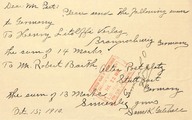 Dear Mr. 
Please send the following sum
to Germany
To Henry Litolffs Verlag
Braunschweig Germany
The sum of 14 Marks
To Mr Robert Barth
Stuttgart
Germany
The sum of 13 Marks
Sincerely yours
Oct. 15, 1910